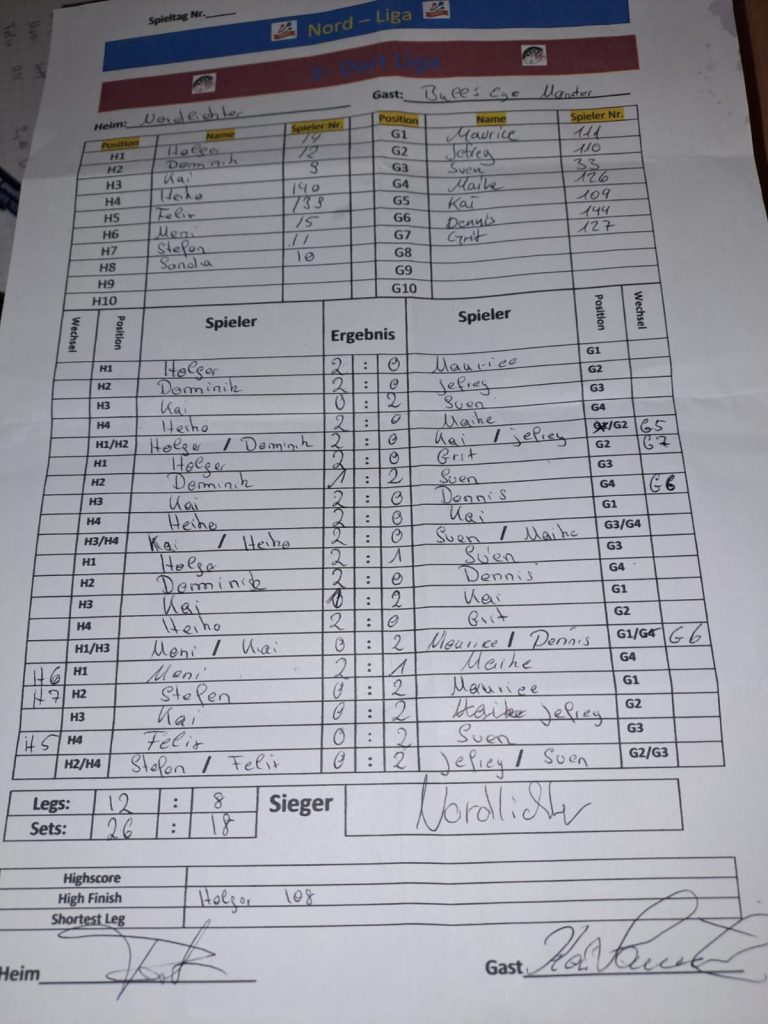 Spieltag Nr.
Nord – Liga
E- Dart Liga
Heim: Nordlichter Gast: Bull's Eye Münster
Position Name Spieler Nr. Position Name Spieler Nr.
H1 Holger 14 G1 Maurice 111
H2 Dominik 12 G2 Jefrey 110
H3 Kai 9 G3 Sven 33
H4 Heiko 140 G4 Maike 126
H5 Felix 139 G5 Kai 109
H6 Meni 15 G6 Dennis 144
H7 Stefan 11 G7 Grit 127
H8 Sandra 10 G8
H9 G9
H10 G10
Wechsel Position Spieler Ergebnis Spieler Position Wechsel
H1 Holger 2 : 0 Maurice G1
H2 Dominik 2 : 0 Jefrey G2
H3 Kai 0 : 2 Sven G3
H4 Heiko 2 : 0 Maike G4
H1/H2 Holger / Dominik 2 : 0 Kai / jefrey /G2 G5
H1 Holger 2 : 0 Grit G2 G7
H2 Dominik 1 : 2 Sven G3
H3 Kai 2 : 0 Dennis G4 G6
H4 Heiko 2 : 0 Kai G1
H3/H4 Kai / Heiko 2 : 0 Sven / Maike G3/G4
H1 Holge 2 : 1 Sven G3
H2 Dominik 2 : 0 Dennis G4
H3 Kai 0 : 2 Kai G1
H4 Heiko 2 : 0 Grit G2
H1/H3 Meni / Kai 0 : 2 Maurice / Dennis G1/G4 G6
H6 H1 Meni 2 : 1 Maike G4
H7 H2 Stefen 0 : 2 Maurice G1
H3 Kai 0 : 2 Jefrey G2
H5 H4 Felix 0 : 2 Sven G3
H2/H4 Stefan / Felix 0 : 2 Jefrey / Sven G2/G3
Legs: 12 : 8 Sieger Nordlichter
Sets: 26 : 18
Highscore
High Finish Holger 108
Shortest Leg
Heim Gast